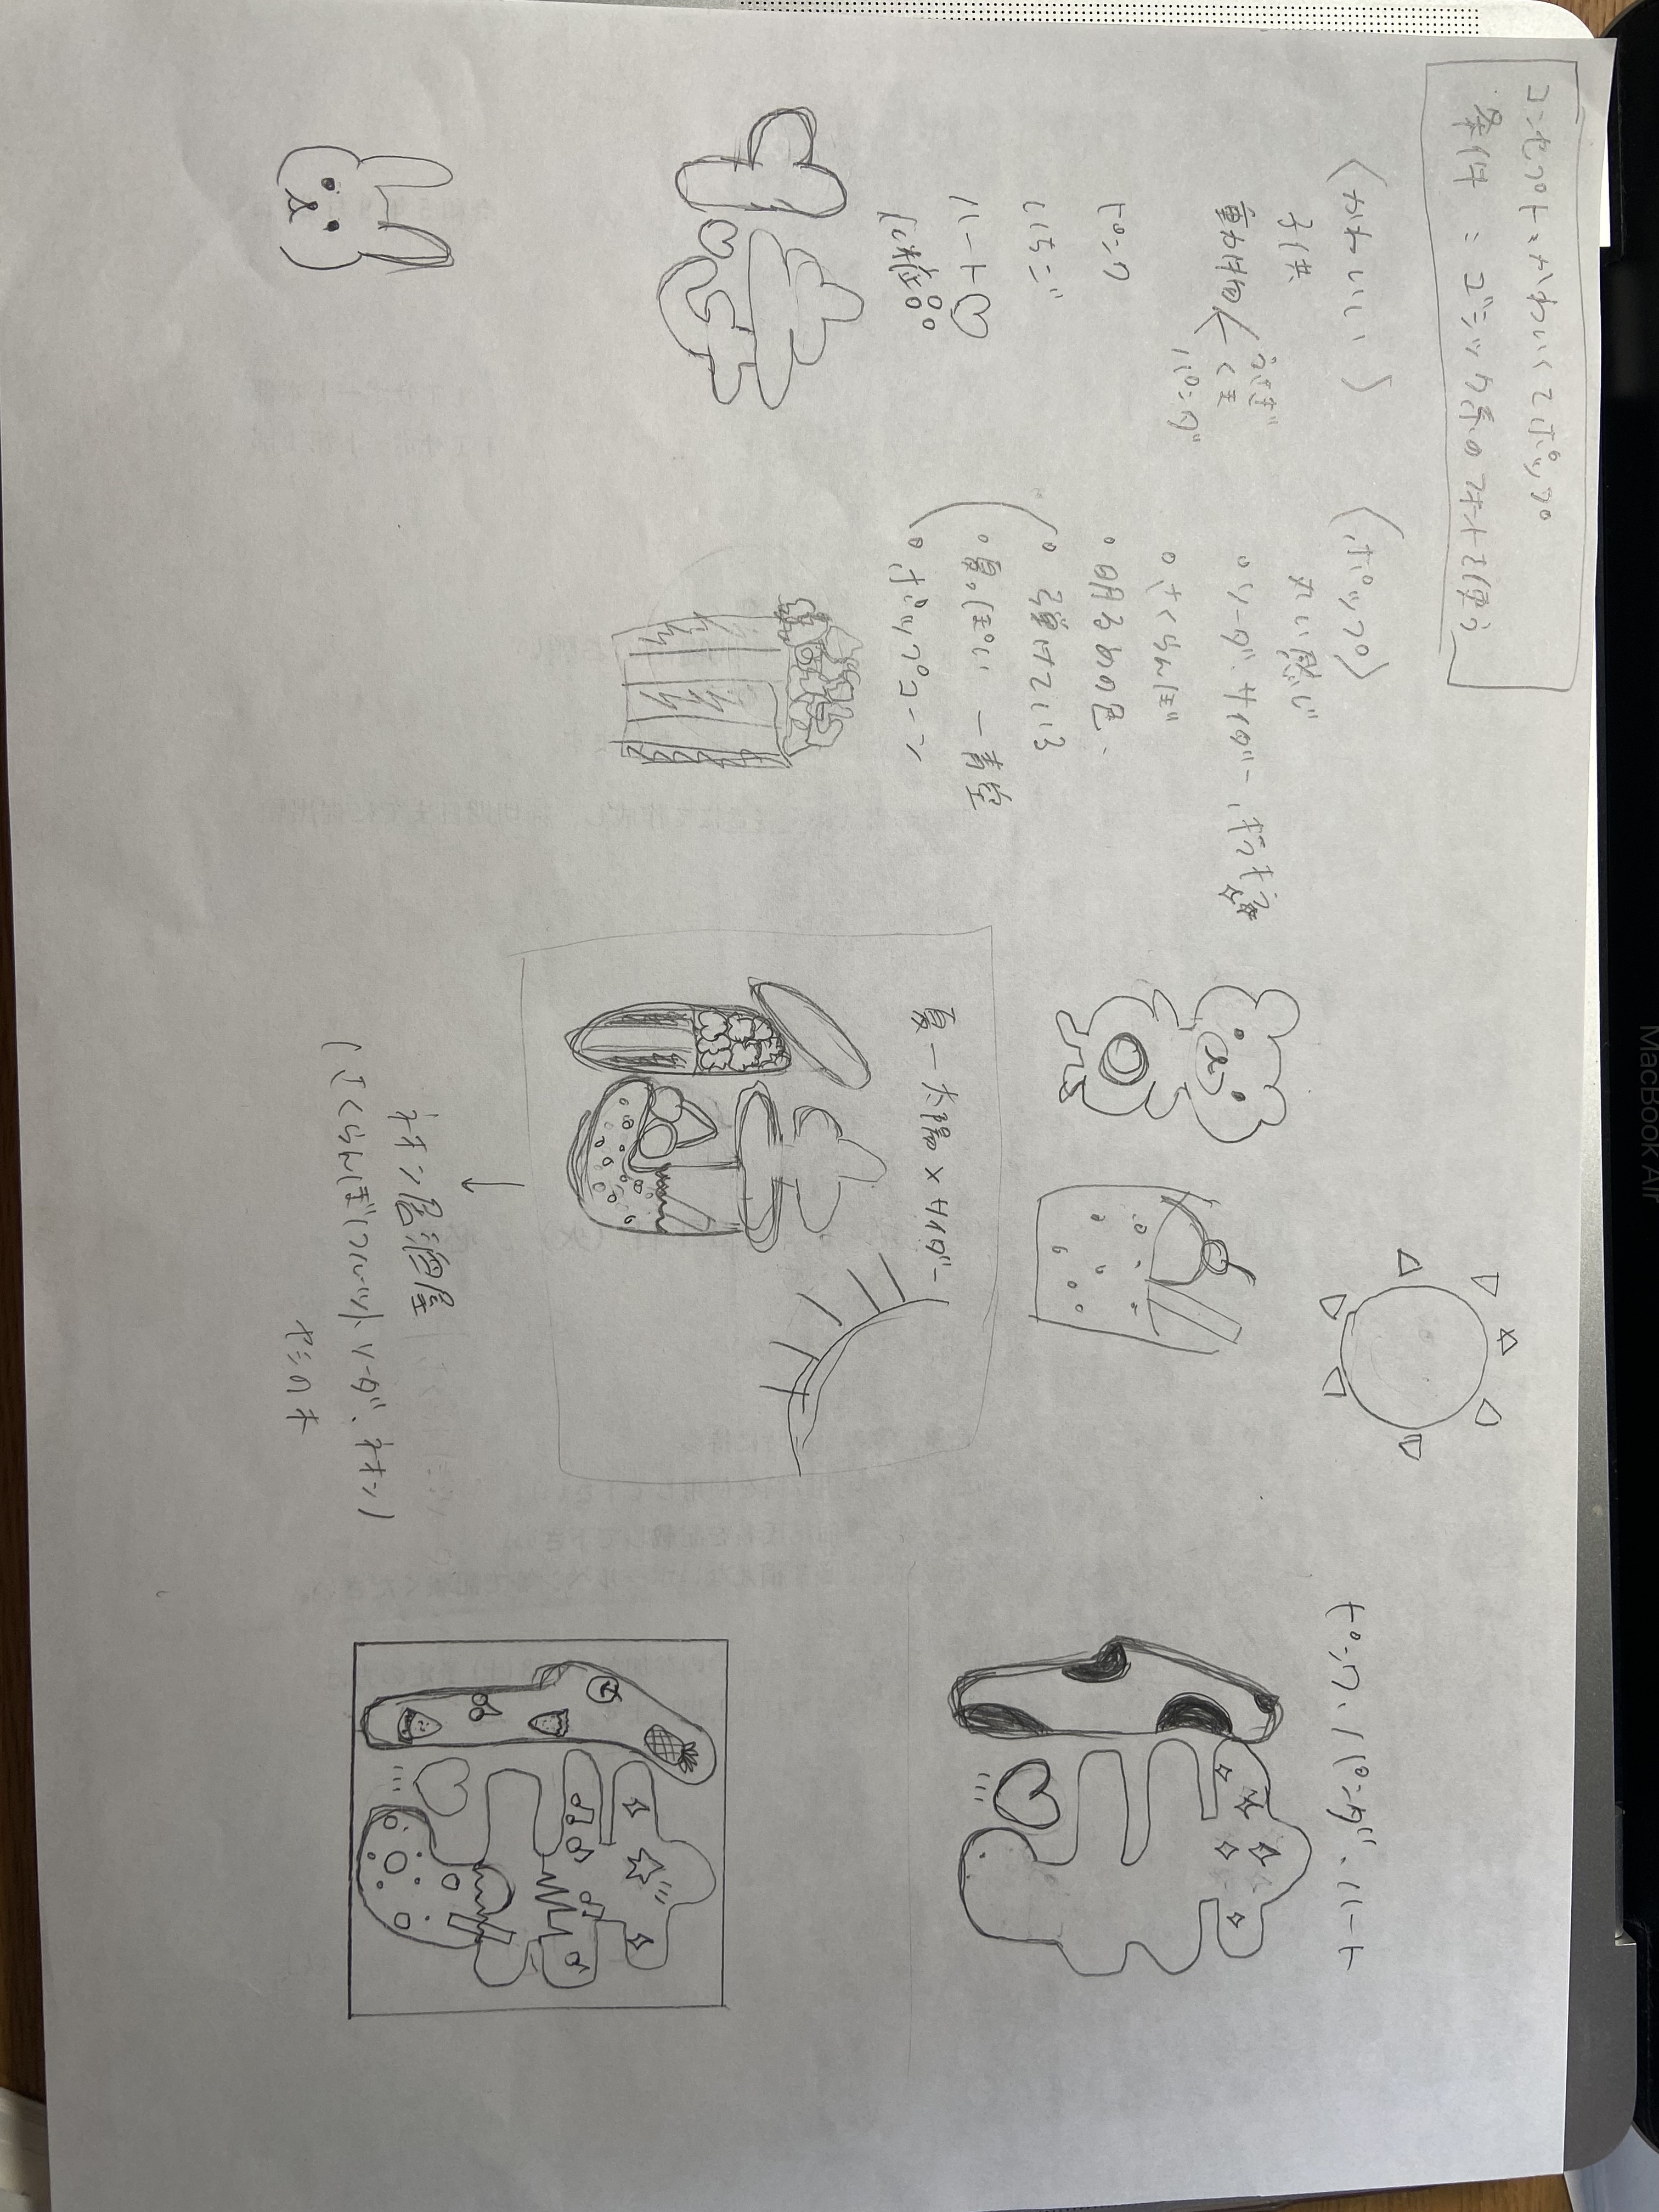 コンセプト：かわいくてポップ
条件：ゴシック系のフォントを使う
〈かわいい〉
子供
動物
うさぎ
くま
パンダ
ピンク
いちご
ハート♡
〈ポップ〉
丸い感じ
・ソーダ、サイダー、
・さくらんぼ
・明るめの色、
・弾けている
・夏っぽい ー 青空
・ポップコーン
夏ー太陽×サイダー
↓
ネオン居酒屋
(さくらんぼ、フルーツ、ソーダ、ネオン)
ヤシの木
ピンク、パンダ、ハート
MacBook Air